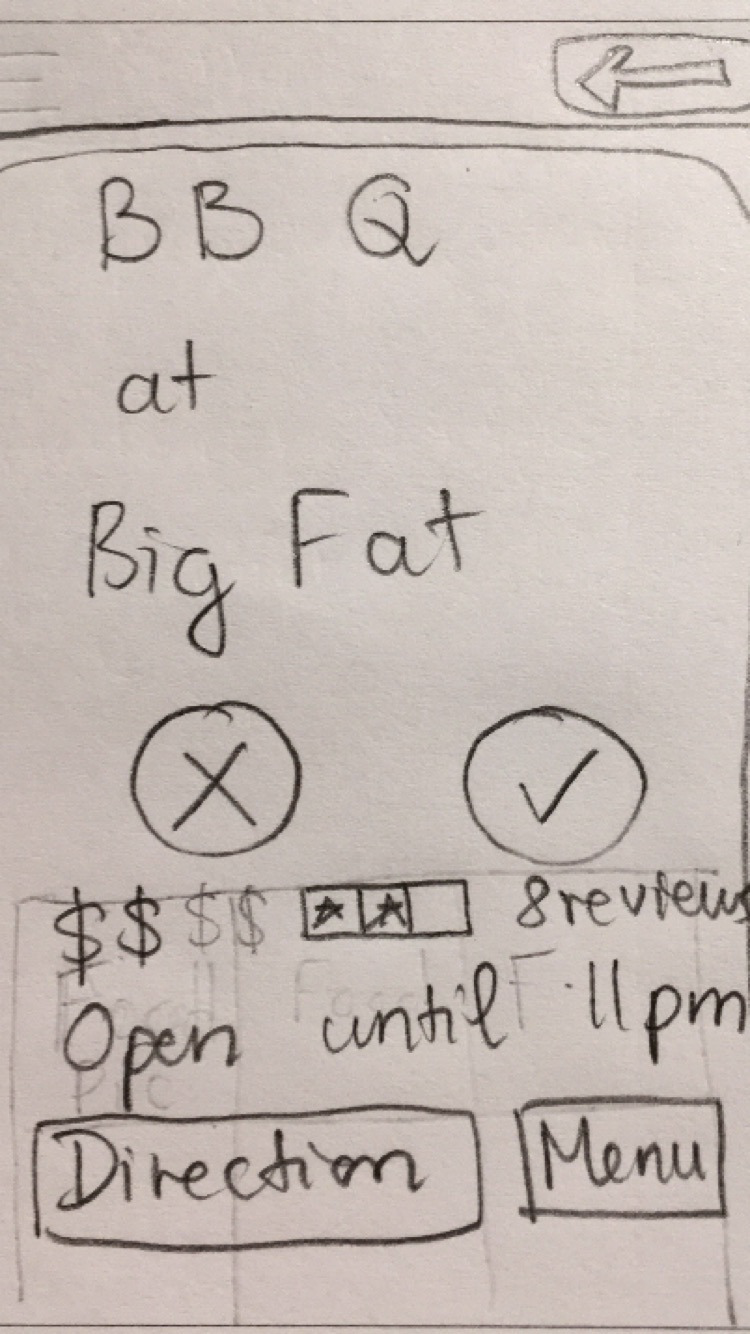 BBQ
at
Big Fat
$$$$ 8 reviews
Open until 11pm
Direction Menu